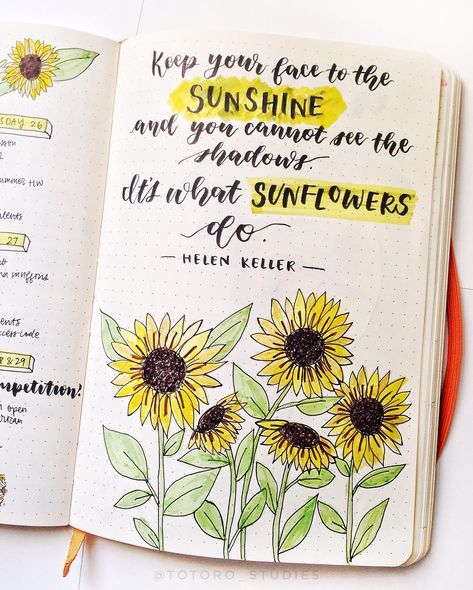 SDAY 26
HW
27
muffins
code
8 & 29
mpetition!
open
Keep your face to the
SUNSHINE
and you cannot see the
shadows.
It's what SUNFLOWERS
do.
— HELEN KELLER —
@TOTORO_STUDIES